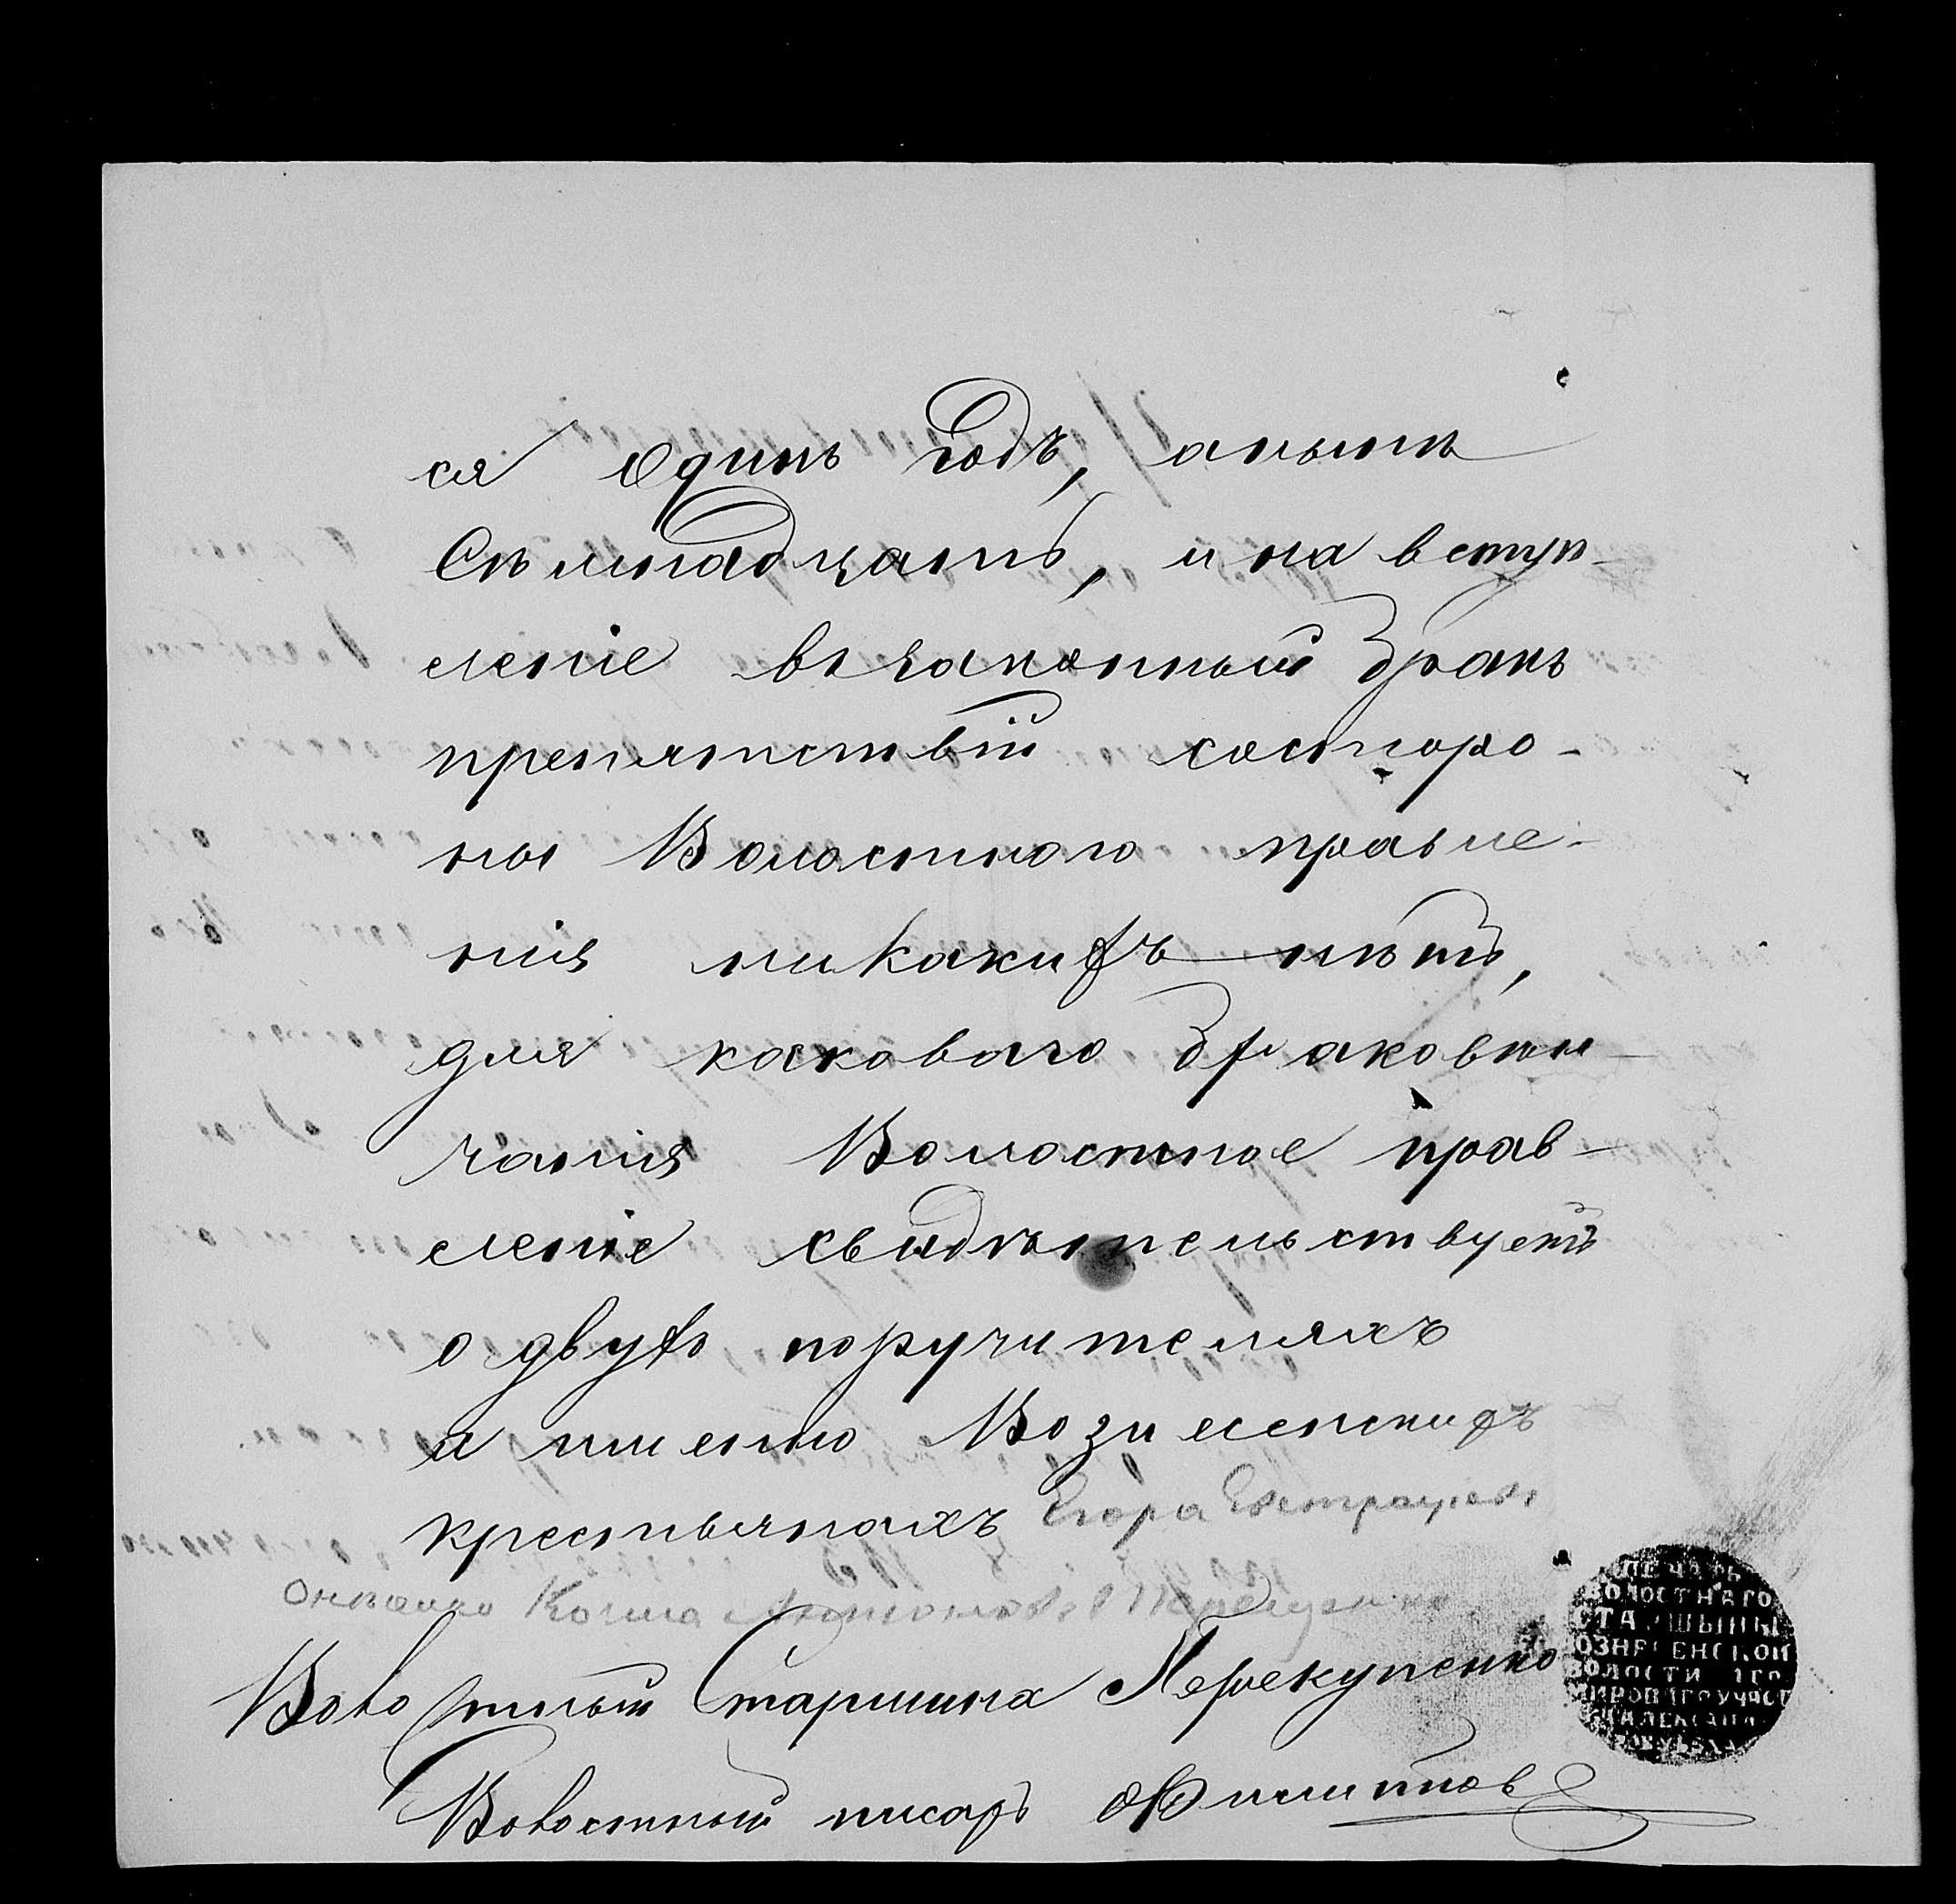 ся Одинъ годъ, анынѣ
Сѣмнадцать, и на вступ-
леніе въ законный бракъ
препятствій состоро-
ны Волостного правле-
нія никакихъ нѣтъ,
для каковаго браковѣн-
чанія Волостное прав-
леніе свидѣтельствуетъ
о двухъ поручителяхъ
а именно Вознесенскихъ
крестьянахъ Егора
Козма
Волостный Старшина Перекупенко
Волостный писарь Филиппов
ПЕЧАТЬ
ВОЛОСТНАГО
СТАРШИНЫ
ОЗНЕСЕНСКОЙ
ВОЛОСТИ 1ГО
МИРОВАГО УЧАСТ
АЛЕКСАН